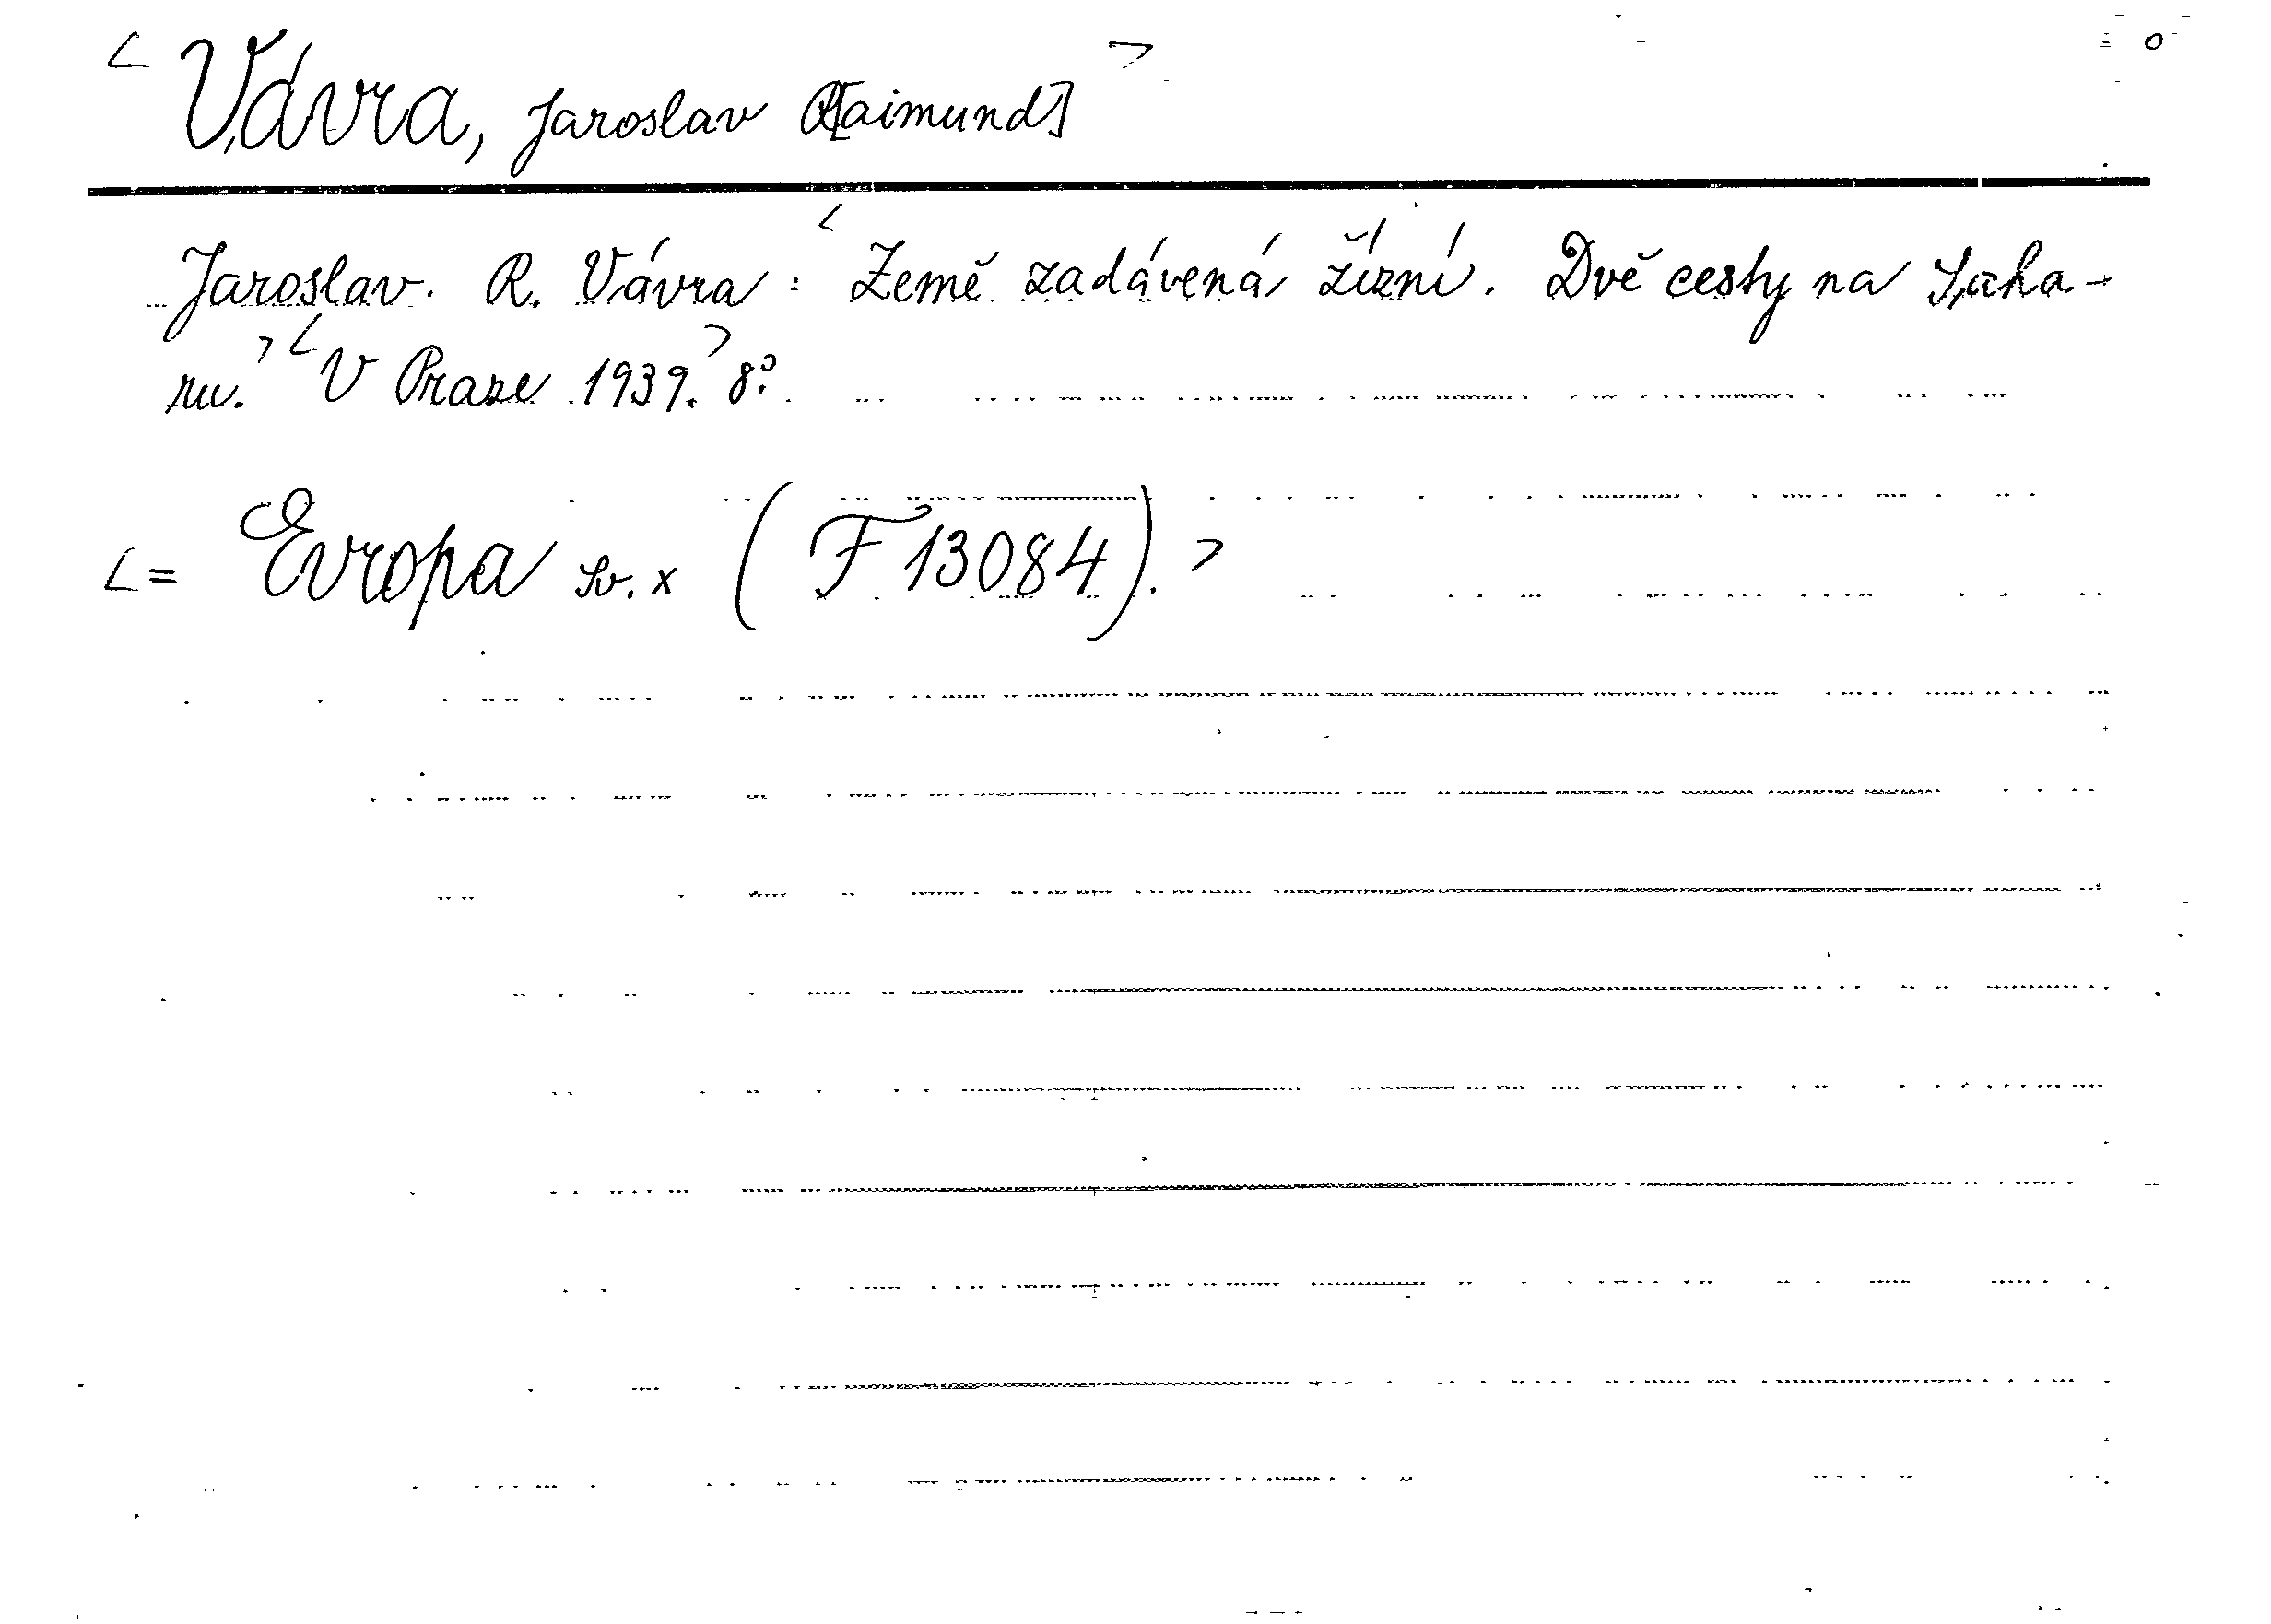 < Vávra, Jaroslav R[aimund] >
Jaroslav. R. Vávra: < Země zadávená žízní. Dvě cesty na Saha-
ru. > < V Praze 1939. > 8°.
< = Evropa sv. x (F 13084). >